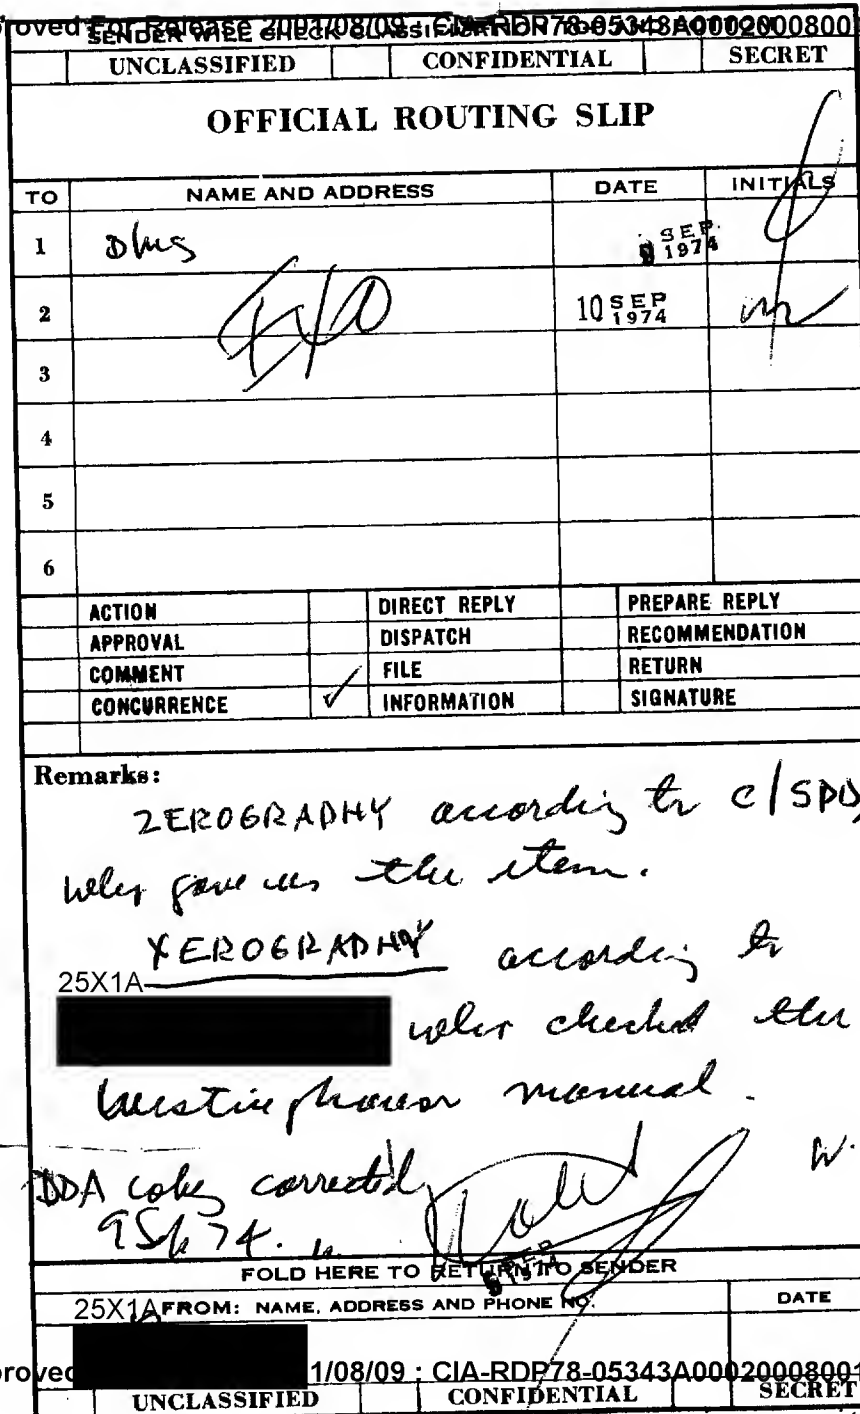 roved For Release 2001/08/09 : CIA-RDP78-05343A0002000800
SENDER WILL CHECK CLASSIFICATION TOP AND BOTTOM
UNCLASSIFIED CONFIDENTIAL SECRET
OFFICIAL ROUTING SLIP
TO NAME AND ADDRESS DATE INITIALS
1 9 SEP 1974
2 10 SEP 1974
3
4
5
6
ACTION DIRECT REPLY PREPARE REPLY
APPROVAL DISPATCH RECOMMENDATION
COMMENT FILE RETURN
CONCURRENCE ✓ INFORMATION SIGNATURE
Remarks:
ZEROGRAPHY according to C/SPD,
who gave us the item.
XEROGRAPHY according to
25X1A
who checked the
manual.
DDA copy corrected
9 Sep 74.
9 SEP 1974
FOLD HERE TO RETURN TO SENDER
25X1A FROM: NAME, ADDRESS AND PHONE NO. DATE
roved 1/08/09 : CIA-RDP78-05343A0002000800
UNCLASSIFIED CONFIDENTIAL SECRET